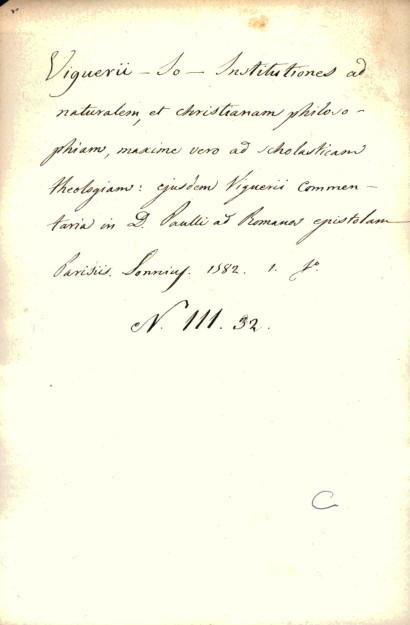 Viguerii - Jo - Institutiones ad
naturalem, et christianam philoso-
phiam, maxime vero ad scholasticam
theologiam: ejusdem Viguerii Commen-
taria in D. Paulli ad Romanos epistolam
Parisiis. Sonnius. 1582. 1. fo.
N. III. 32.
C